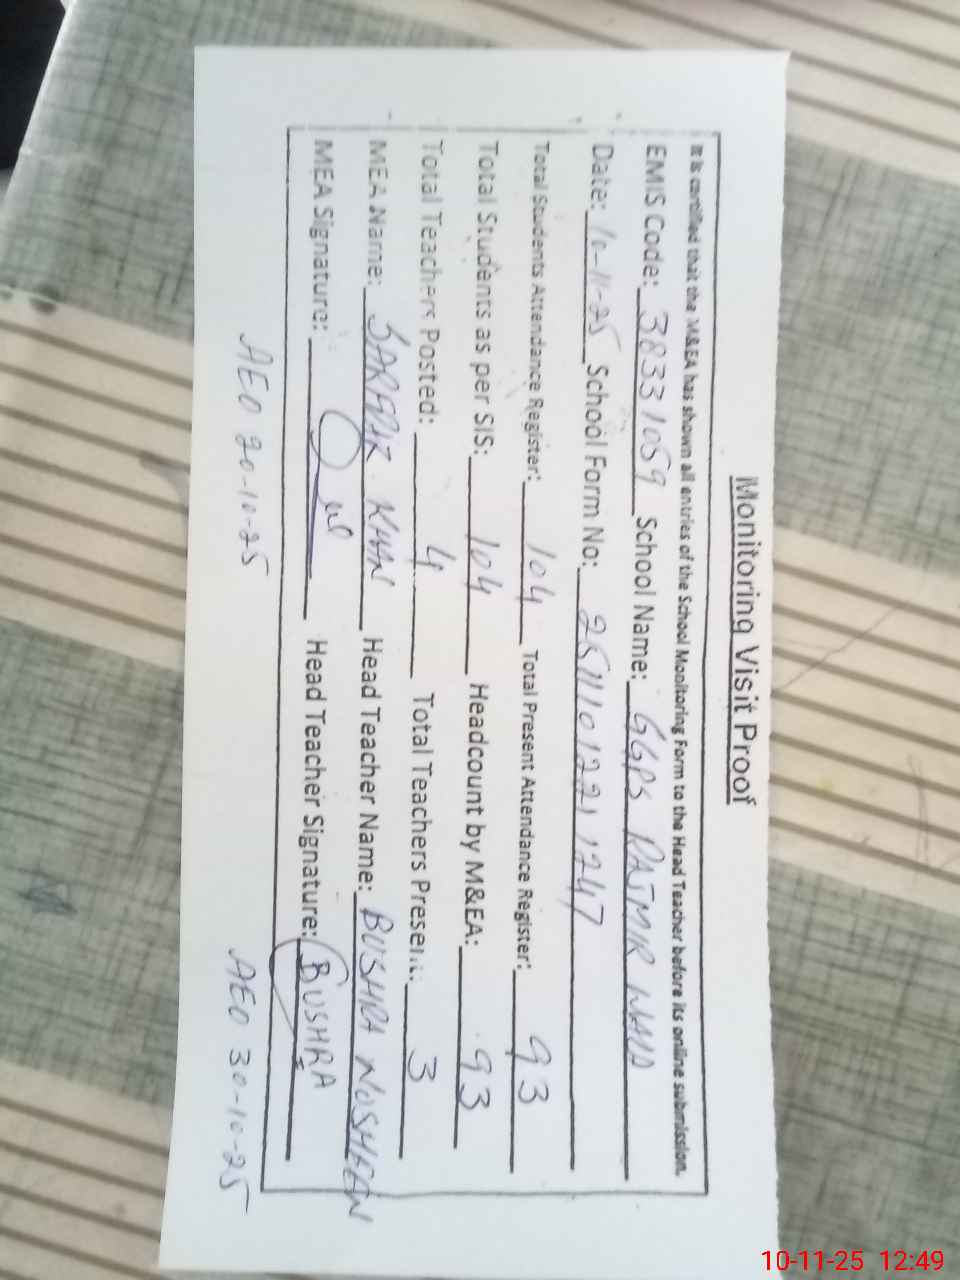 Monitoring Visit Proof
It is certified that the M&EA has shown all entries of the School Monitoring Form to the Head Teacher before its online submission.
EMIS Code: 38331059 School Name: GGPS
Date: 10-11-25 School Form No:
Total Students Attendance Register: 104 Total Present Attendance Register: 93
Total Students as per SIS: 104 Headcount by M&EA: 93
Total Teachers Posted: 4 Total Teachers Present: 3
MEA Name: KHAN Head Teacher Name: BUSHRA NOSHEEN
MEA Signature: Head Teacher Signature: BUSHRA
AEO 20-10-25 AEO 30-10-25
10-11-25 12:49